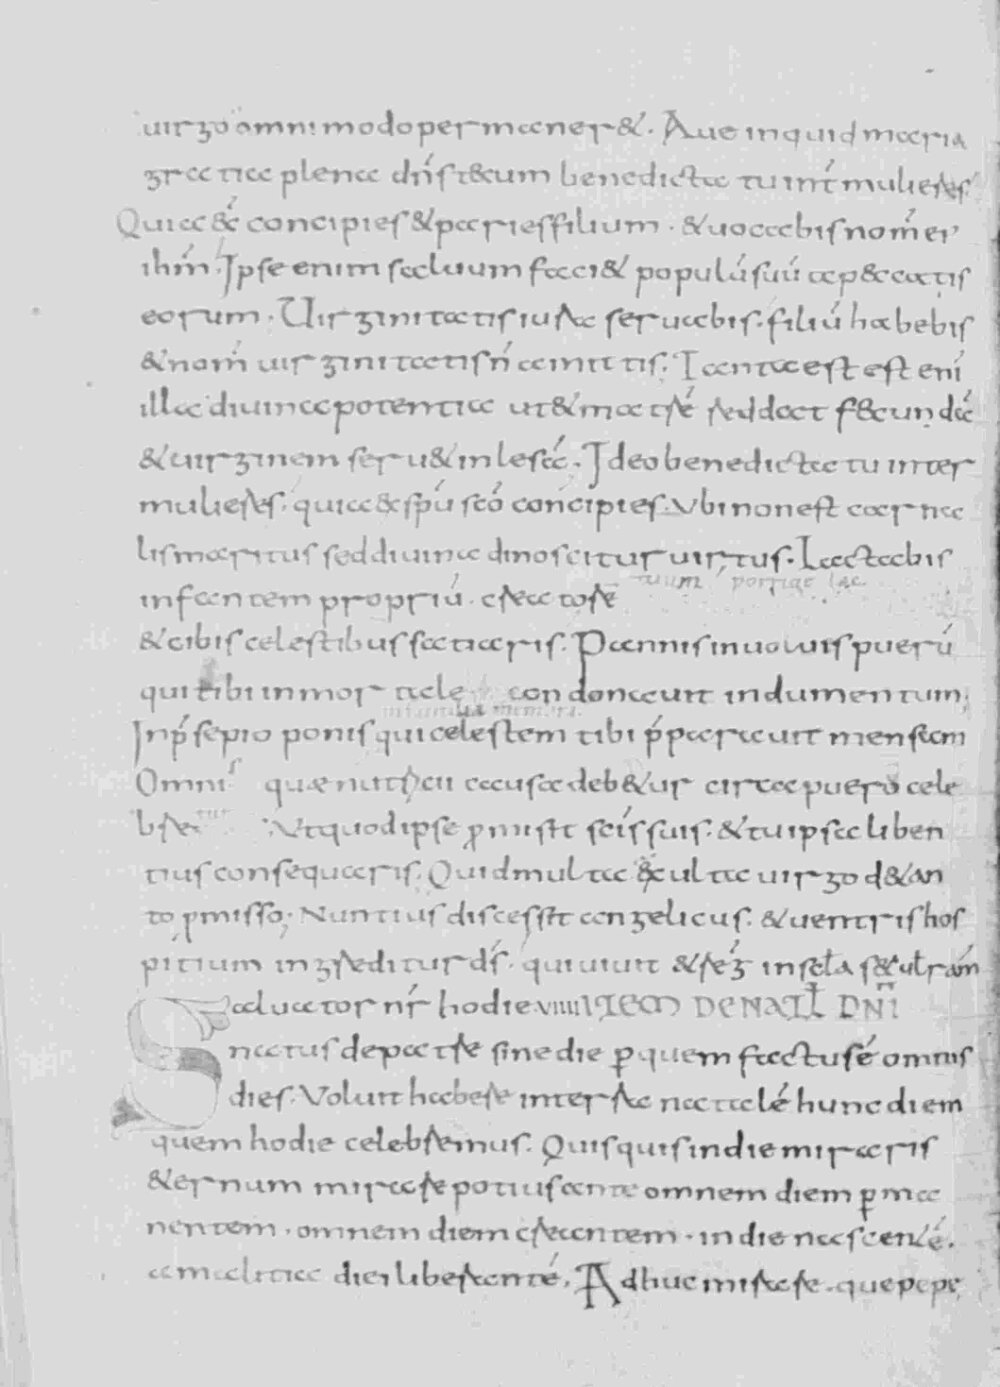 uirgo omnimodo permaner&. Aue inquid maria
gratia plena dn̄s t&cum benedicta tu int̄ mulieres.
Quia &c̄ concipies & paries filium. & uocabis nom̄ ei'
ihm̄. Ipse enim saluum faci& populū suū a p&catis
eorum. Uirginitatis iura seruabis. filiū habebis
& nom̄ uirginitatis n̄ amittis. Tanta est est eni̅
illa diuina potentia ut & matrē reddat f&cundā
& uirginem seru& inlesā. Ideo benedicta tu inter
mulieres. quia & sp̄u sc̄o concipies. Ubi non est carna
lis maritus sed diuina dinoscitur uirtus. Lactabis
tuum porrige lac
infantem propriū. creatorē
& cibis celestibus satiaris. Pannis inuoluis puerū
qui tibi inmortale condonauit indumentum.
infantilia membra
In p̄sepio ponis qui celestem tibi p̄parauit mensam
Omnis quæ nutricii causa deb&ur circa puero cele
bretur Ut quod ipse promisit sc̄is suis. & tu ipsa liben
tius consequaris. Quid multa &ulta uirgo d& an
to p̄misso; Nuntius discessit angelicus. & uentris hos
pitium ingreditur ds̄. qui uiuit & reḡ in sc̄la s&ulrām
Saluator nr̄ hodie VIIII ITEM DE NATL DN̄I
natus de patre sine die p̱ quem factus ē omnis
dies. Voluit habere in terra natalē hunc diem
quem hodie celebremus. Quisquis in die miraris
&ernum mirare potius ante omnem diem p̱ma
nentem. omnem diem creantem. in die nascentē.
a malitia diei liberantē. Adhuc mirare. que pepe